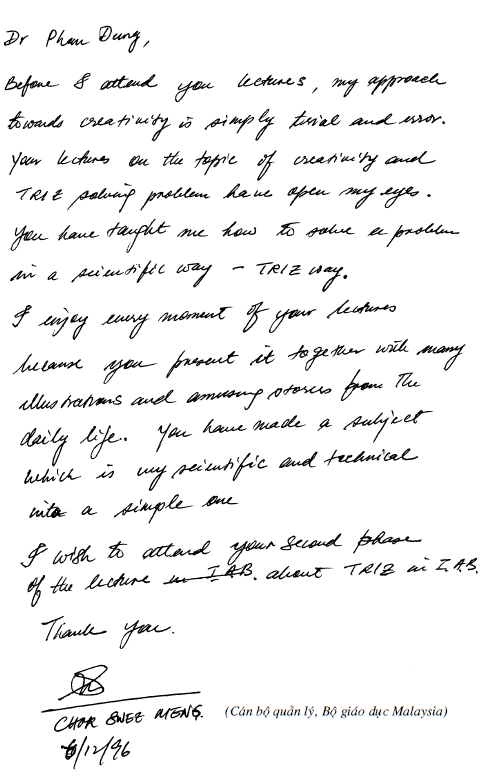 Dr Phan Dung,
Before I attend you lectures, my approach
towards creativity is simply trial and error.
Your lectures on the topic of creativity and
TRIZ solving problem have open my eyes.
You have taught me how to solve a problem
in a scientific way – TRIZ way.
I enjoy every moment of your lectures
because you present it together with many
illustrations and amusing stories from the
daily life. You have made a subject
which is very scientific and technical
into a simple one
I wish to attend your second phase
of the lecture in I.A.B. about TRIZ in I.A.B.
Thank you.
CHOR SWEE MENG. (Cán bộ quản lý, Bộ giáo dục Malaysia)
6/12/96